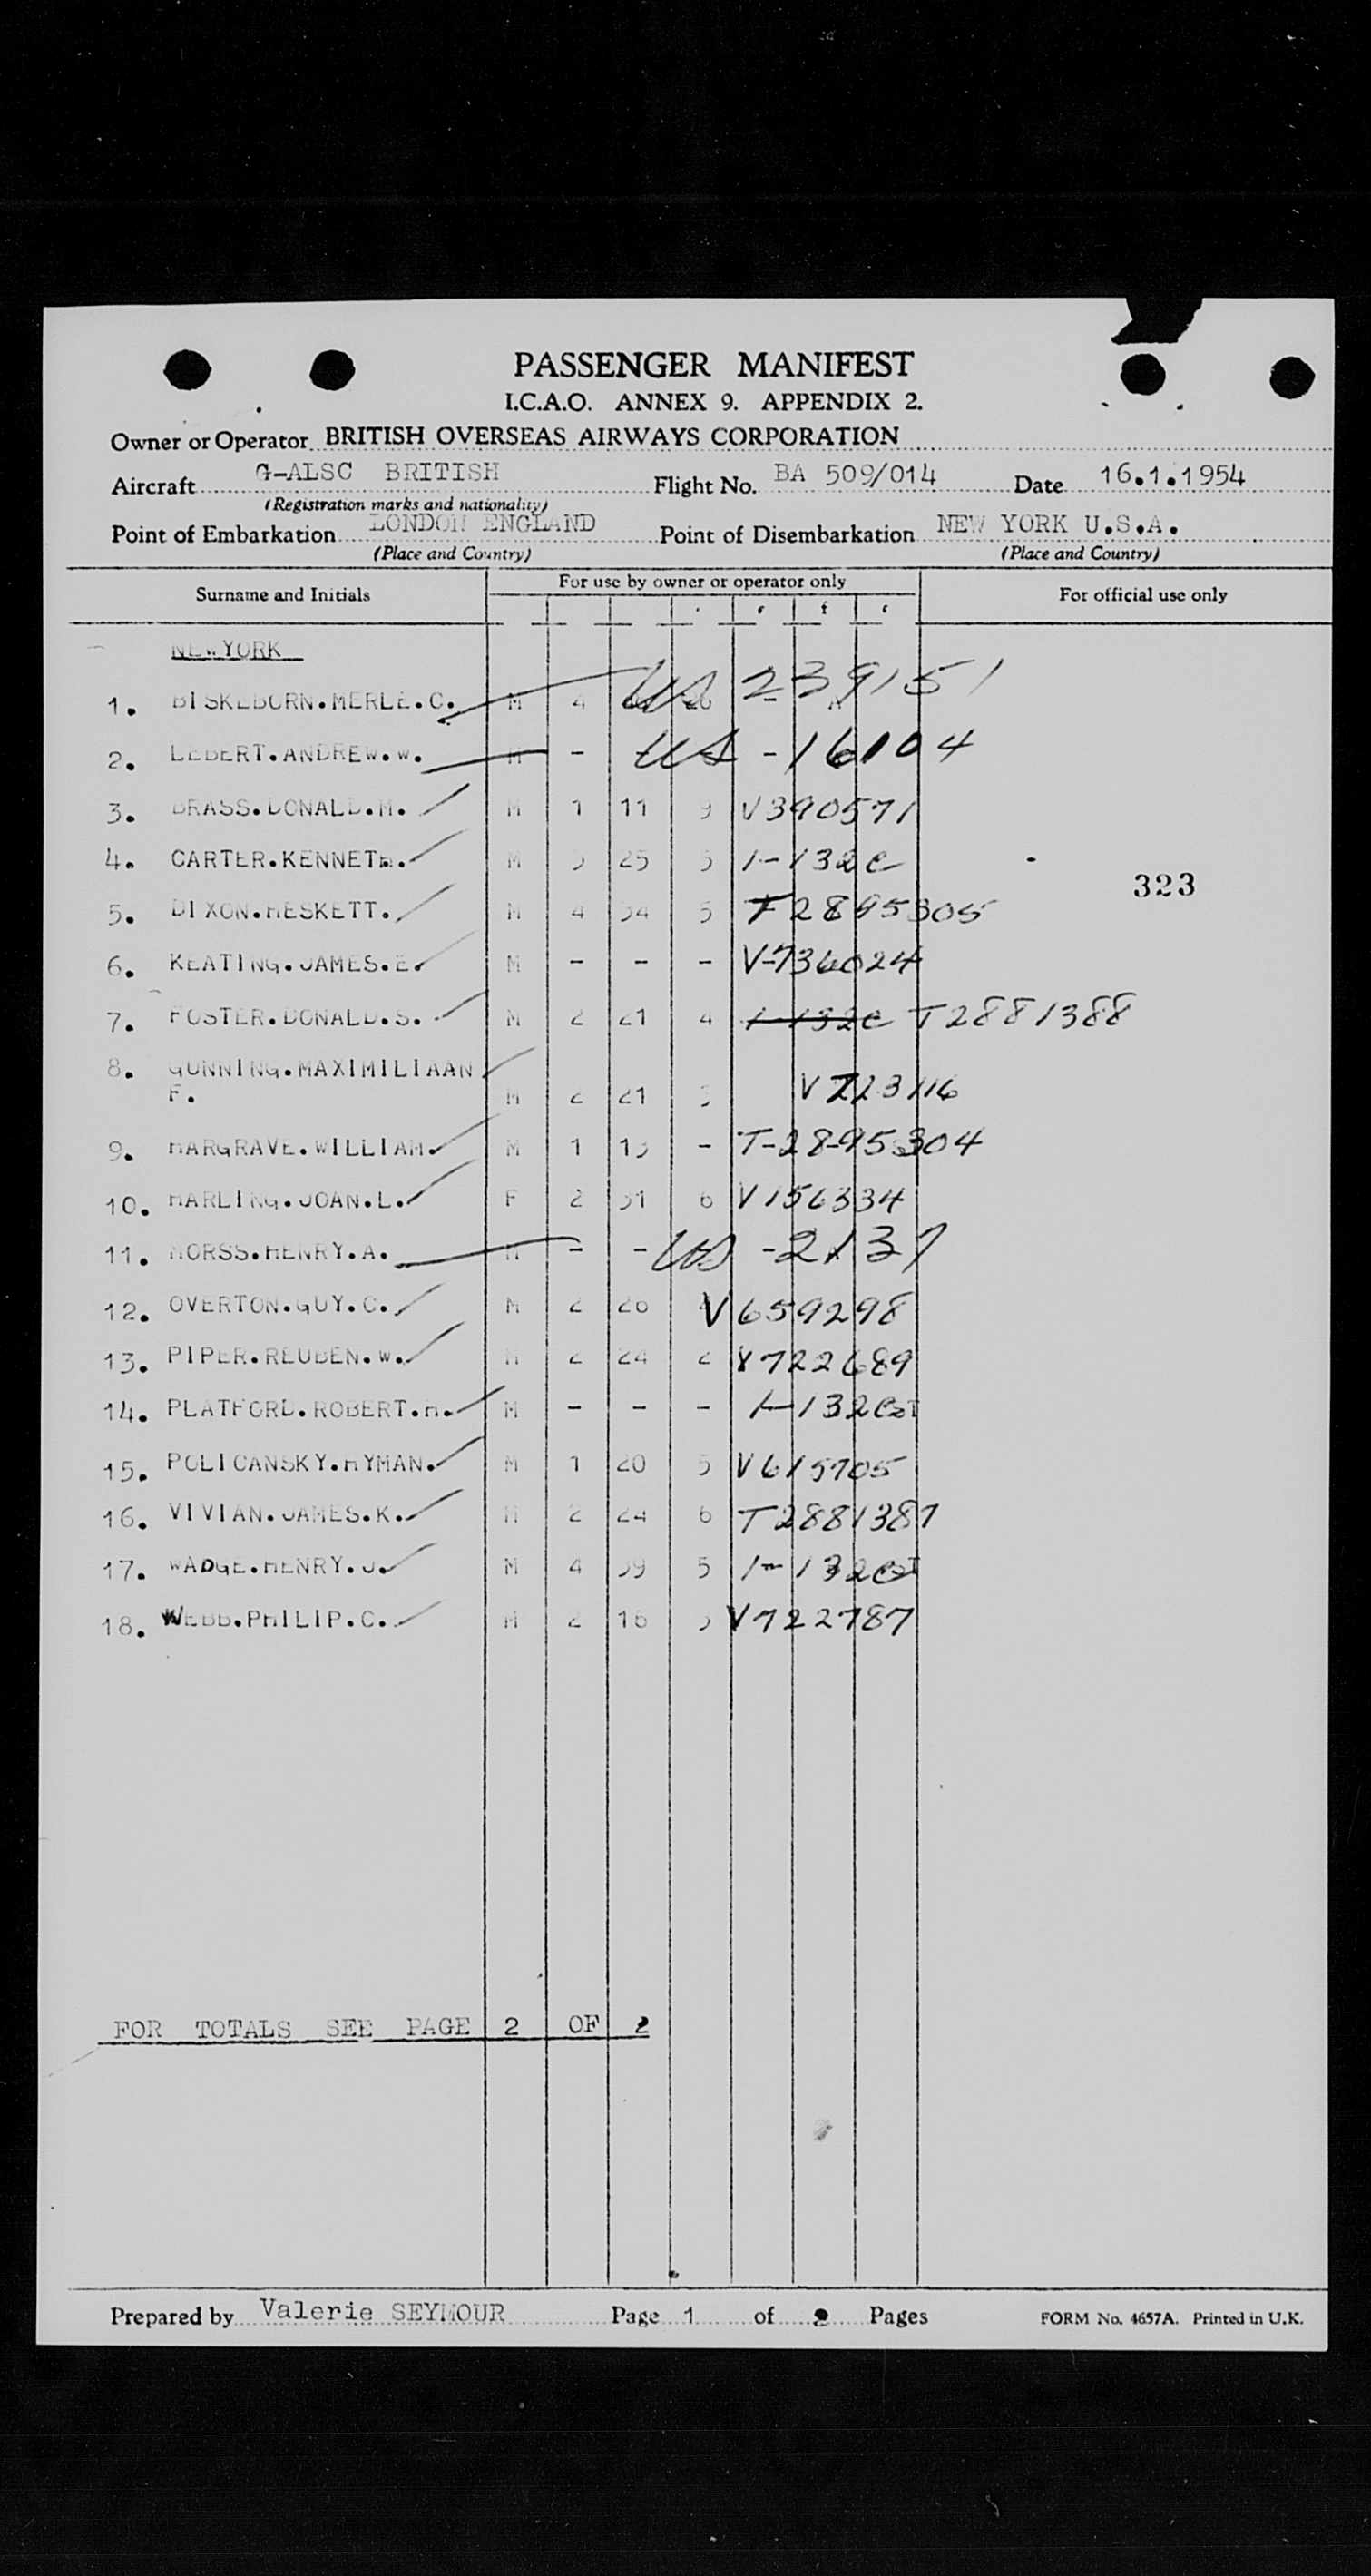 PASSENGER MANIFEST
I.C.A.O. ANNEX 9. APPENDIX 2.
Owner or Operator BRITISH OVERSEAS AIRWAYS CORPORATION
Aircraft G-ALSC BRITISH Flight No. BA 509/014 Date 16.1.1954
(Registration marks and nationality)
Point of Embarkation LONDON ENGLAND Point of Disembarkation NEW YORK U.S.A.
(Place and Country) (Place and Country)
Surname and Initials For use by owner or operator only For official use only
NEWYORK
1. BISKEBORN.MERLE.C. M 4 US 239151
2. LEBERT.ANDREW.W. M - US -16104
3. BRASS.DONALD.M. M 1 11 9 V390571
4. CARTER.KENNETH. M 25 5 1-132C
323
5. DIXON.HESKETT. M 4 34 5 T2895305
6. KEATING.JAMES.E. M - - - V-736024
7. FOSTER.DONALD.S. M 2 21 4 1-132C T2881388
8. GUNNING.MAXIMILIAAN
F. M 2 21 V723116
9. HARGRAVE.WILLIAM. M 1 - T-28-95304
10. HARLING.JOAN.L. F 2 31 6 V156334
11. MORSS.HENRY.A. M - - US -2137
12. OVERTON.GUY.C. M 2 26 V659298
13. PIPER.REUBEN.W. M 2 24 2 V722689
14. PLATFORD.ROBERT.H. M - - - 1-132
15. POLICANSKY.HYMAN. M 1 20 5 V615705
16. VIVIAN.JAMES.K. M 2 24 6 T2881387
17. WADGE.HENRY.J. M 4 39 5 1-132
18. WEBB.PHILIP.C. M 2 16 V722787
FOR TOTALS SEE PAGE 2 OF 2
Prepared by Valerie SEYMOUR Page 1 of 2 Pages FORM No. 4657A. Printed in U.K.